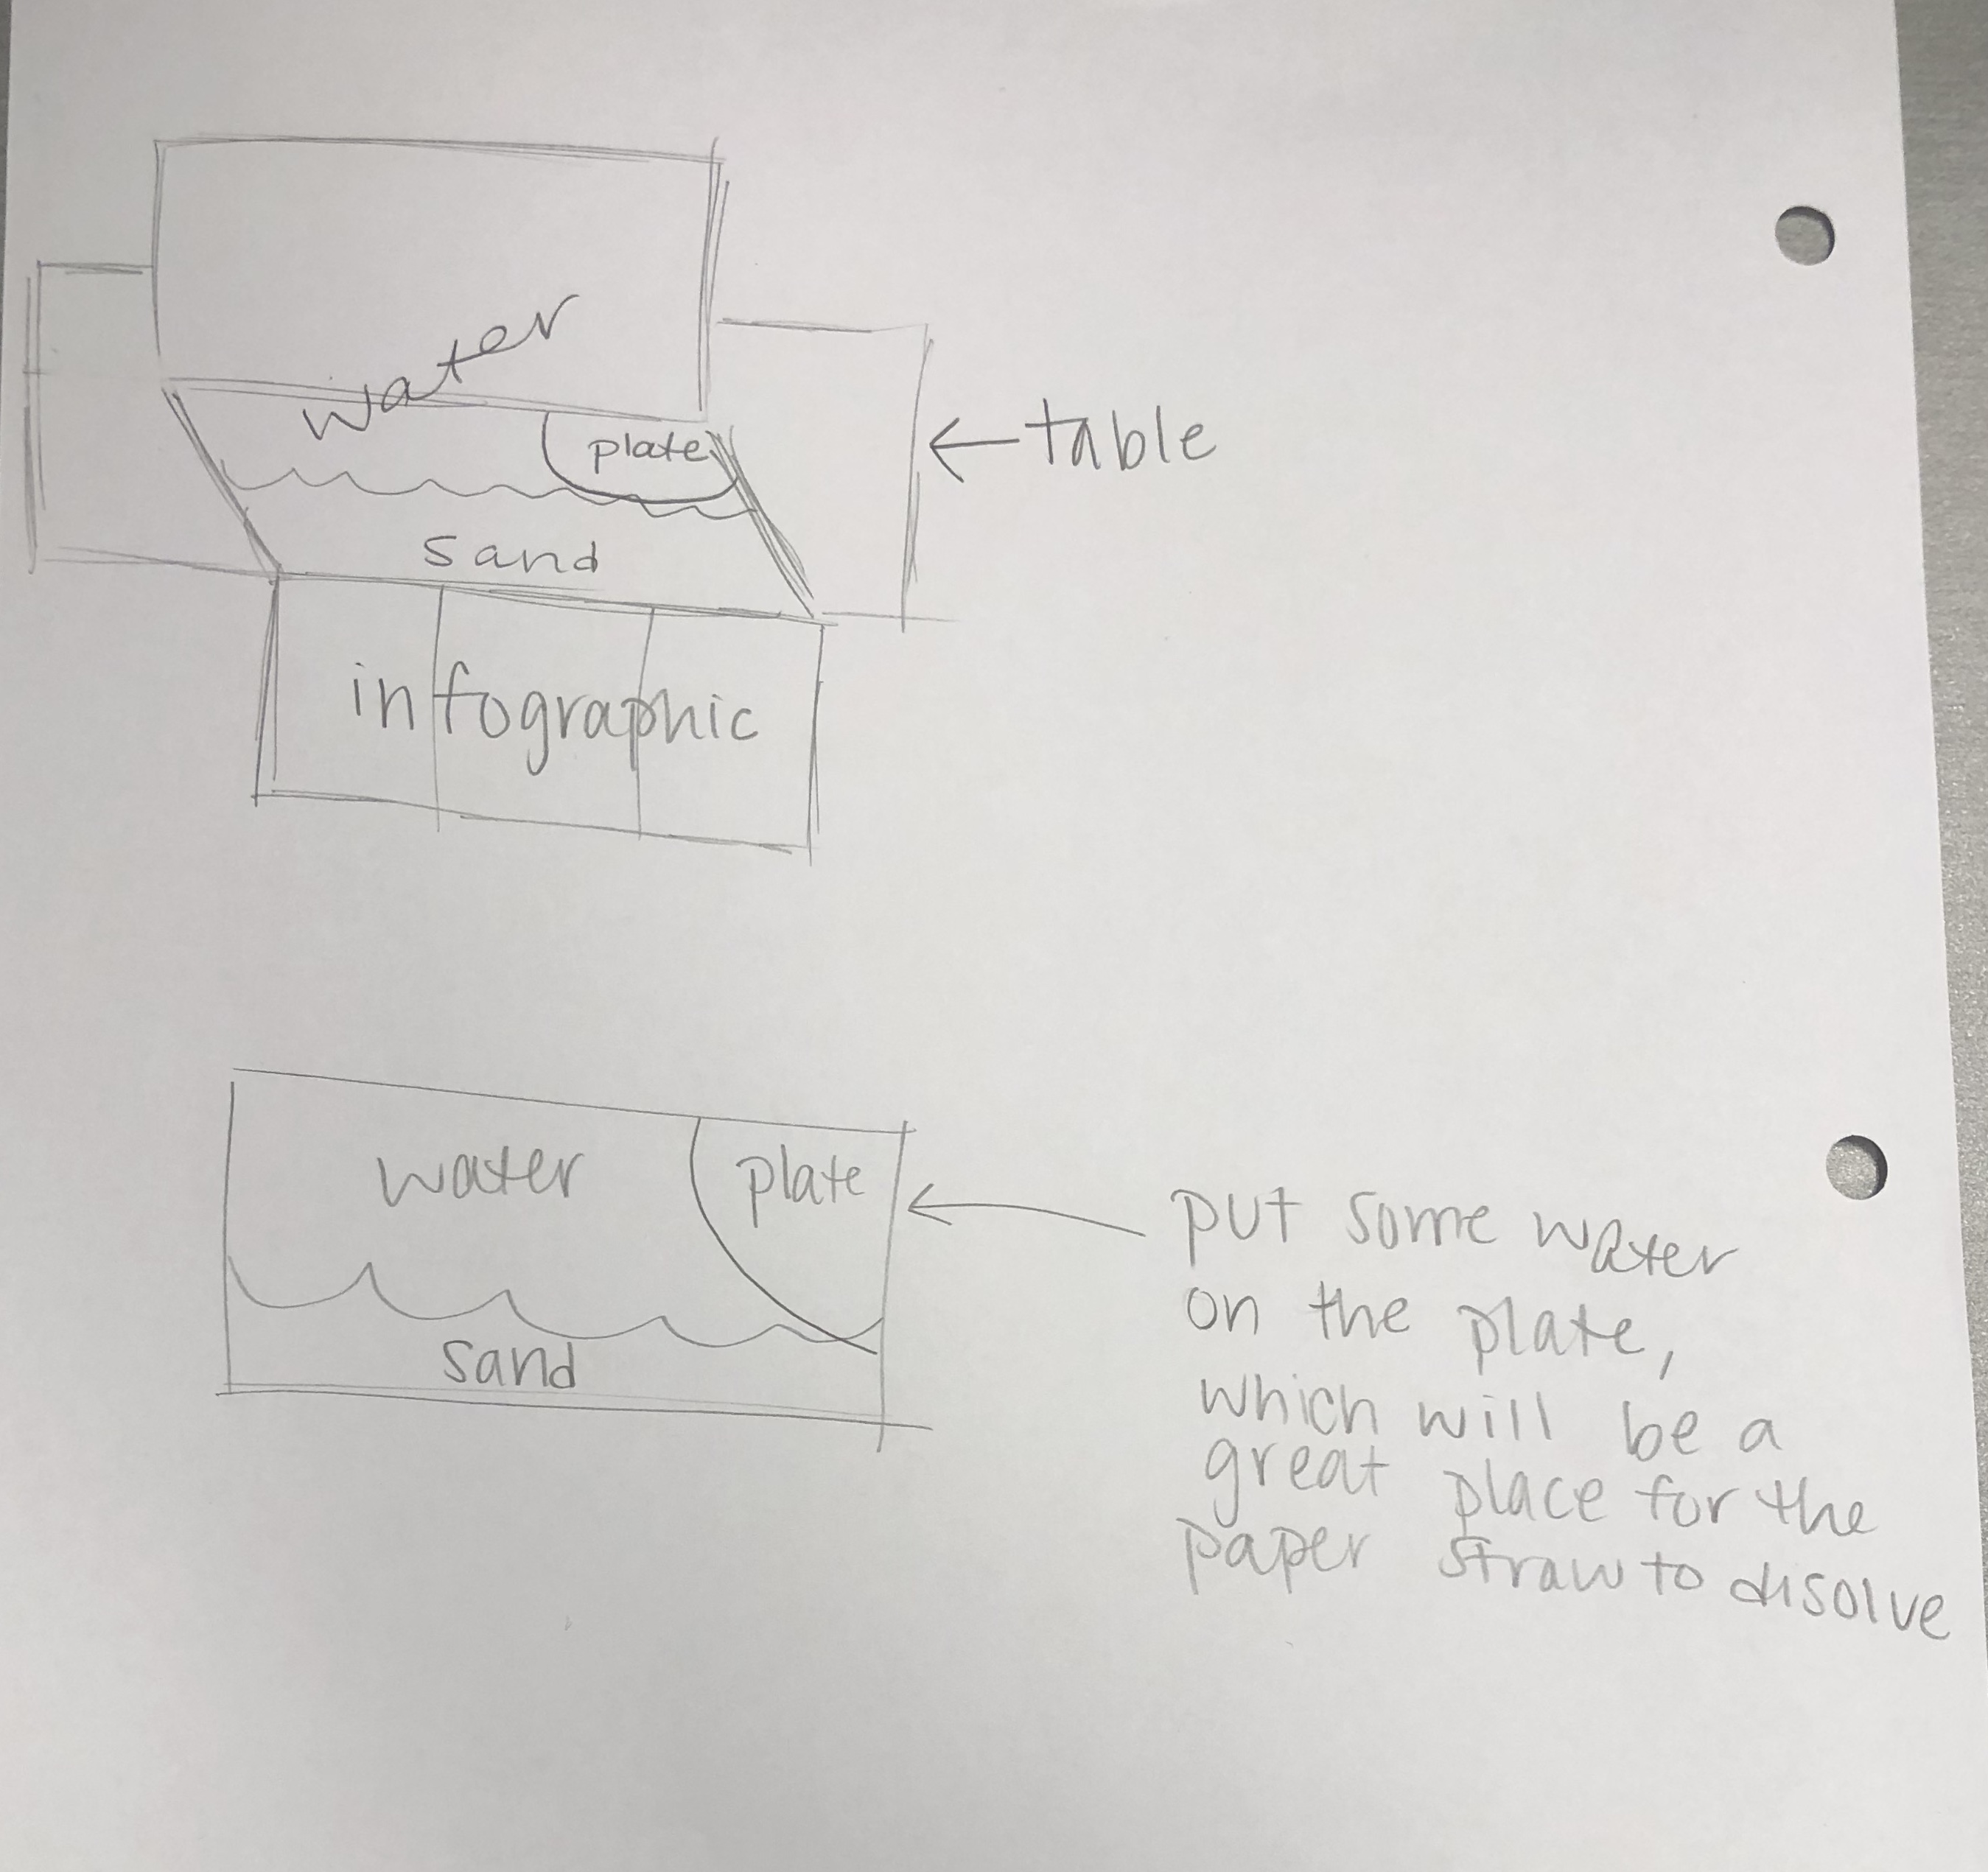 water
plate
← table
sand
infographic
water
plate
sand
put some water
on the plate,
which will be a
great place for the
paper straw to disolve